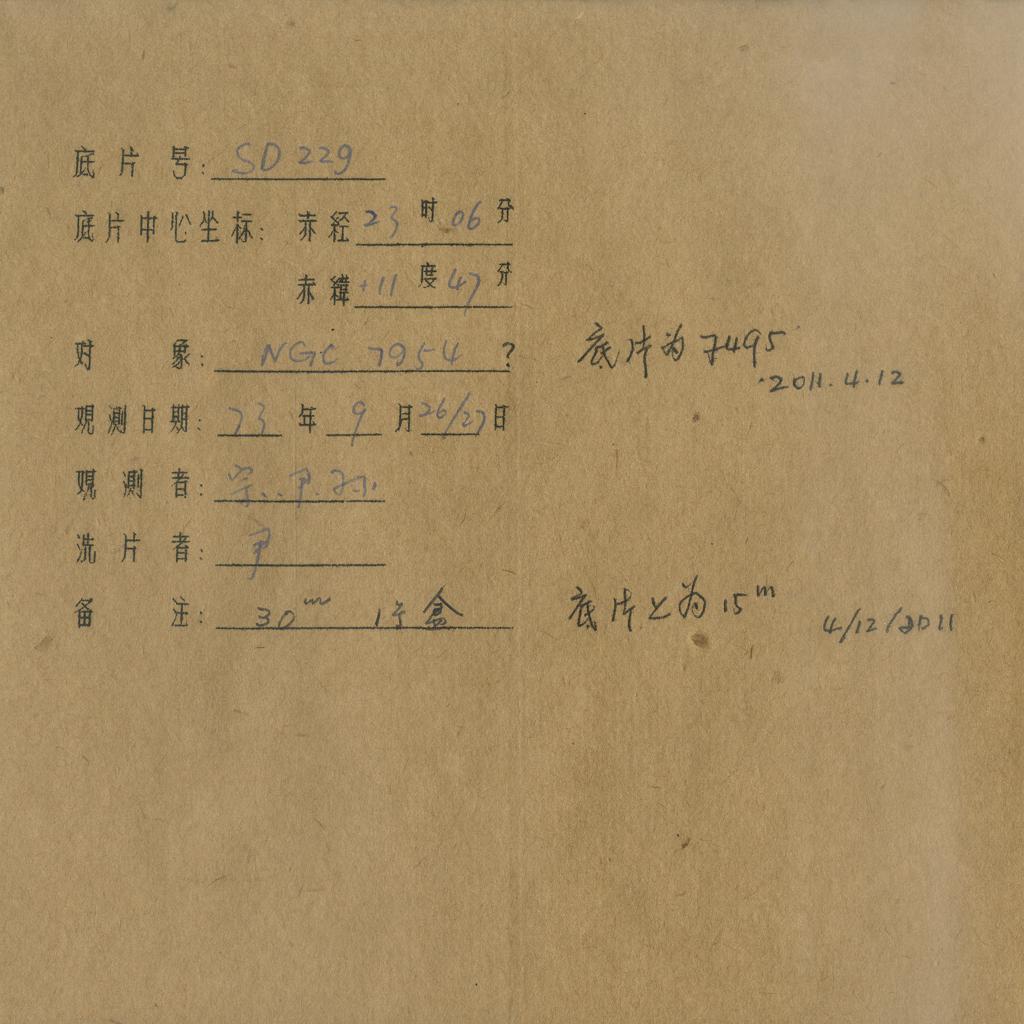 底片号: SD 229
底片中心坐标: 赤经 23 时 06 分
赤緯 +11 度 47 分
对象: NGC 7954 ? 底片为 7495
2011.4.12
观测日期: 73 年 9 月 26/27 日
观测者: 宗.尹.孙.
洗片者: 尹
备注: 30m 1号盒 底片上为 15m
4/12/2011